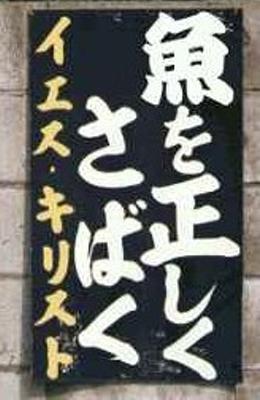 魚を正しく
さばく
イエス・キリスト